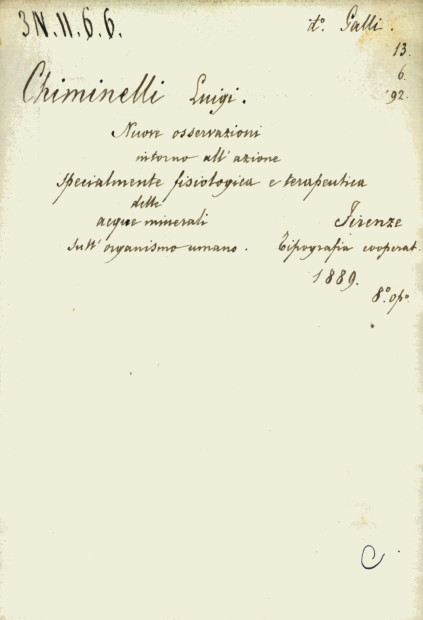 3N.11.6.6.
d.º Galli.
13.
6.
'92.
Chiminelli Luigi.
Nuove osservazioni
intorno all'azione
specialmente fisiologica e terapeutica
delle
acque minerali
sull'organismo umano.
Firenze
Tipografia cooperat.
1889.
8.º op.º
C